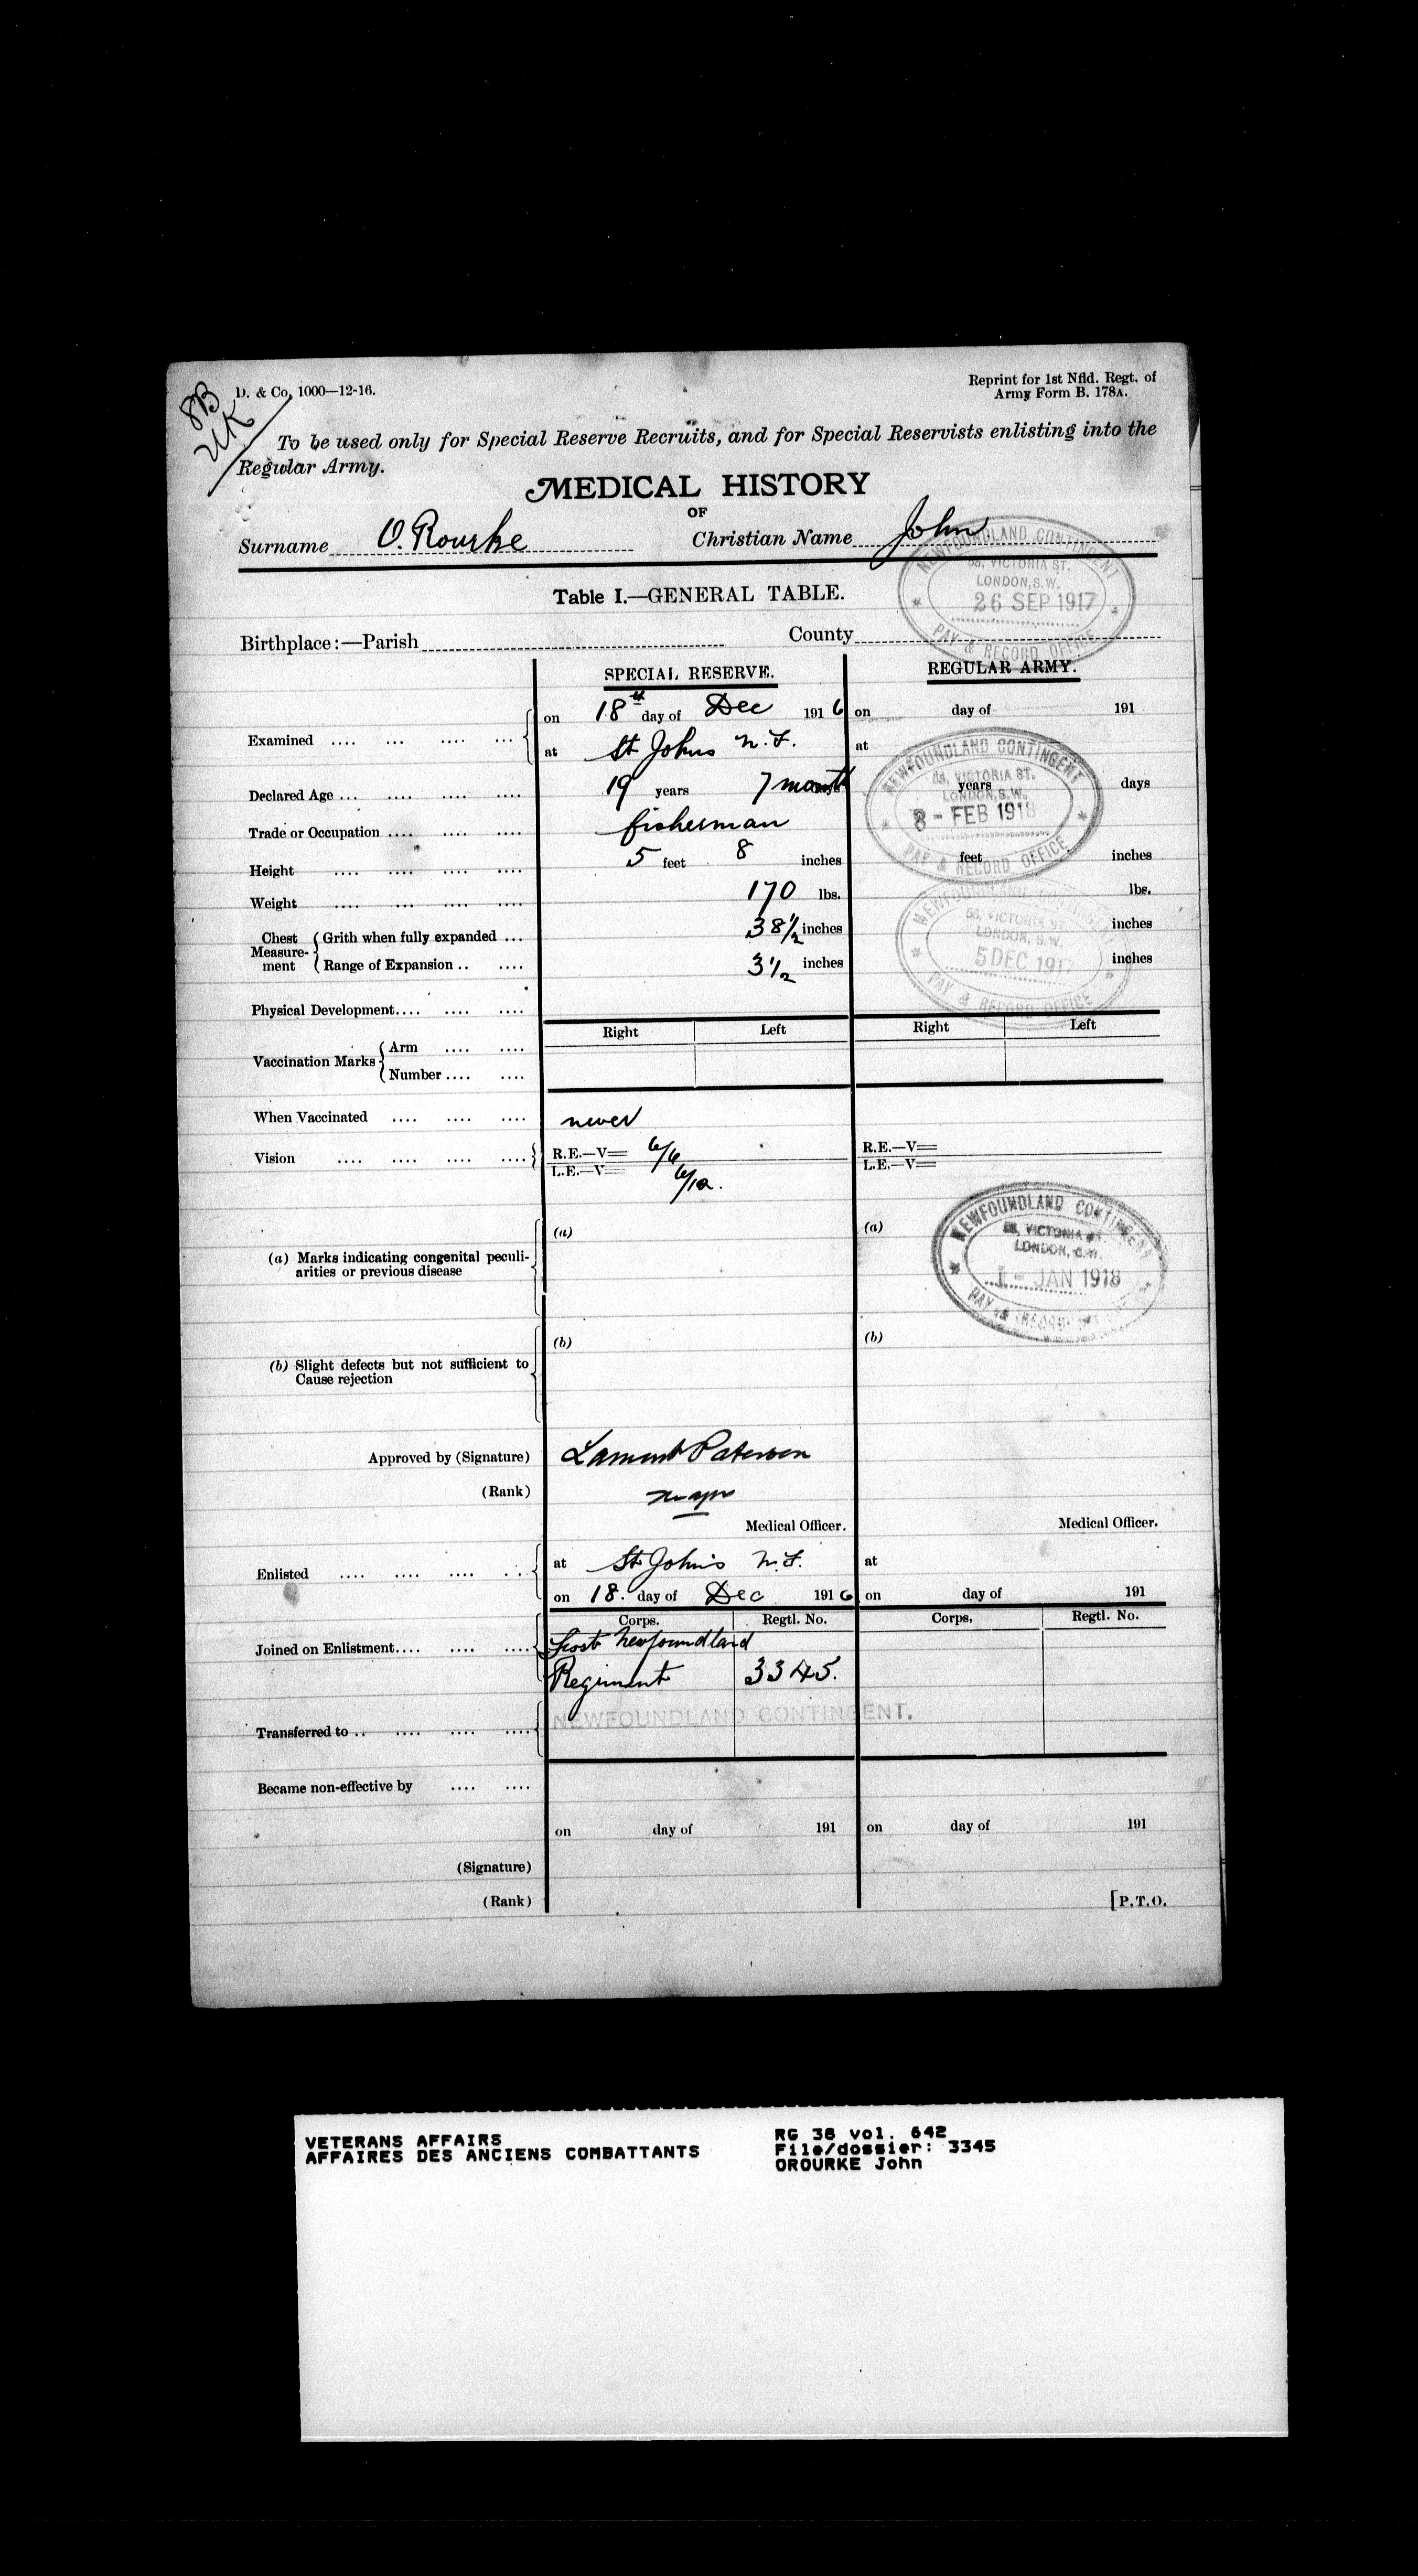 8B
UK
D. & Co. 1000—12-16.
Reprint for 1st Nfld. Regt. of
Army Form B. 178A.
To be used only for Special Reserve Recruits, and for Special Reservists enlisting into the
Regular Army.
MEDICAL HISTORY
OF
Surname O.Rourke Christian Name John
NEWFOUNDLAND CONTINGENT
58, VICTORIA ST.
LONDON, S.W.
26 SEP 1917
PAY & RECORD OFFICE
Table I.—GENERAL TABLE.
Birthplace:—Parish County
SPECIAL RESERVE. REGULAR ARMY.
Examined .... ... .... ... on 18th day of Dec 1916 on day of 191
at St Johns N.F. at
NEWFOUNDLAND CONTINGENT
58, VICTORIA ST.
LONDON, S.W.
8 - FEB 1918
PAY & RECORD OFFICE
Declared Age ... .... .... .... 19 years 7 months years days
Trade or Occupation .... .... .... fisherman
Height .... .... .... .... 5 feet 8 inches feet inches
Weight .... ... .... .... 170 lbs. lbs.
NEWFOUNDLAND CONTINGENT
58, VICTORIA ST.
LONDON, S.W.
5 DEC 1917
PAY & RECORD OFFICE
Chest Measurement Grith when fully expanded ... 38 1/2 inches inches
Range of Expansion .. .... 3 1/2 inches inches
Physical Development.... .... ....
Right Left Right Left
Vaccination Marks Arm .... ....
Number .... ....
When Vaccinated .... .... .... never
Vision .... .... .... .... R.E.—V= 6/6 R.E.—V=
L.E.—V= 6/12. L.E.—V=
NEWFOUNDLAND CONTINGENT
58, VICTORIA ST.
LONDON, S.W.
1 - JAN 1918
PAY & RECORD OFFICE
(a) (a)
(a) Marks indicating congenital peculi-
arities or previous disease
(b) (b)
(b) Slight defects but not sufficient to
Cause rejection
Approved by (Signature) Lamont Paterson
(Rank) Major
Medical Officer. Medical Officer.
Enlisted .... .... .... .... at St Johns N.F. at
on 18. day of Dec 1916 on day of 191
Corps. Regtl. No. Corps, Regtl. No.
Joined on Enlistment.... .... .... First Newfoundland
Regiment 3345.
NEWFOUNDLAND CONTINGENT.
Transferred to .. .... .... ....
Became non-effective by .... ....
on day of 191 on day of 191
(Signature)
(Rank)
[P.T.O.
VETERANS AFFAIRS
AFFAIRES DES ANCIENS COMBATTANTS
RG 38 vol. 642
File/dossier: 3345
OROURKE John